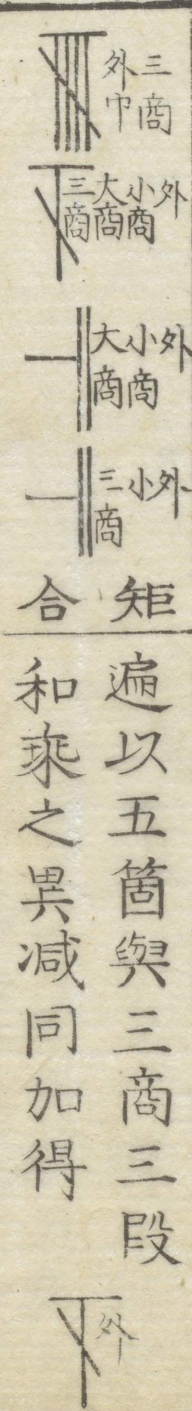 三商
外巾
外
小商
大商
三商
外
小商
大商
外
小
三商
矩合
遍以五箇與三商三段
和乗之異減同加得
外